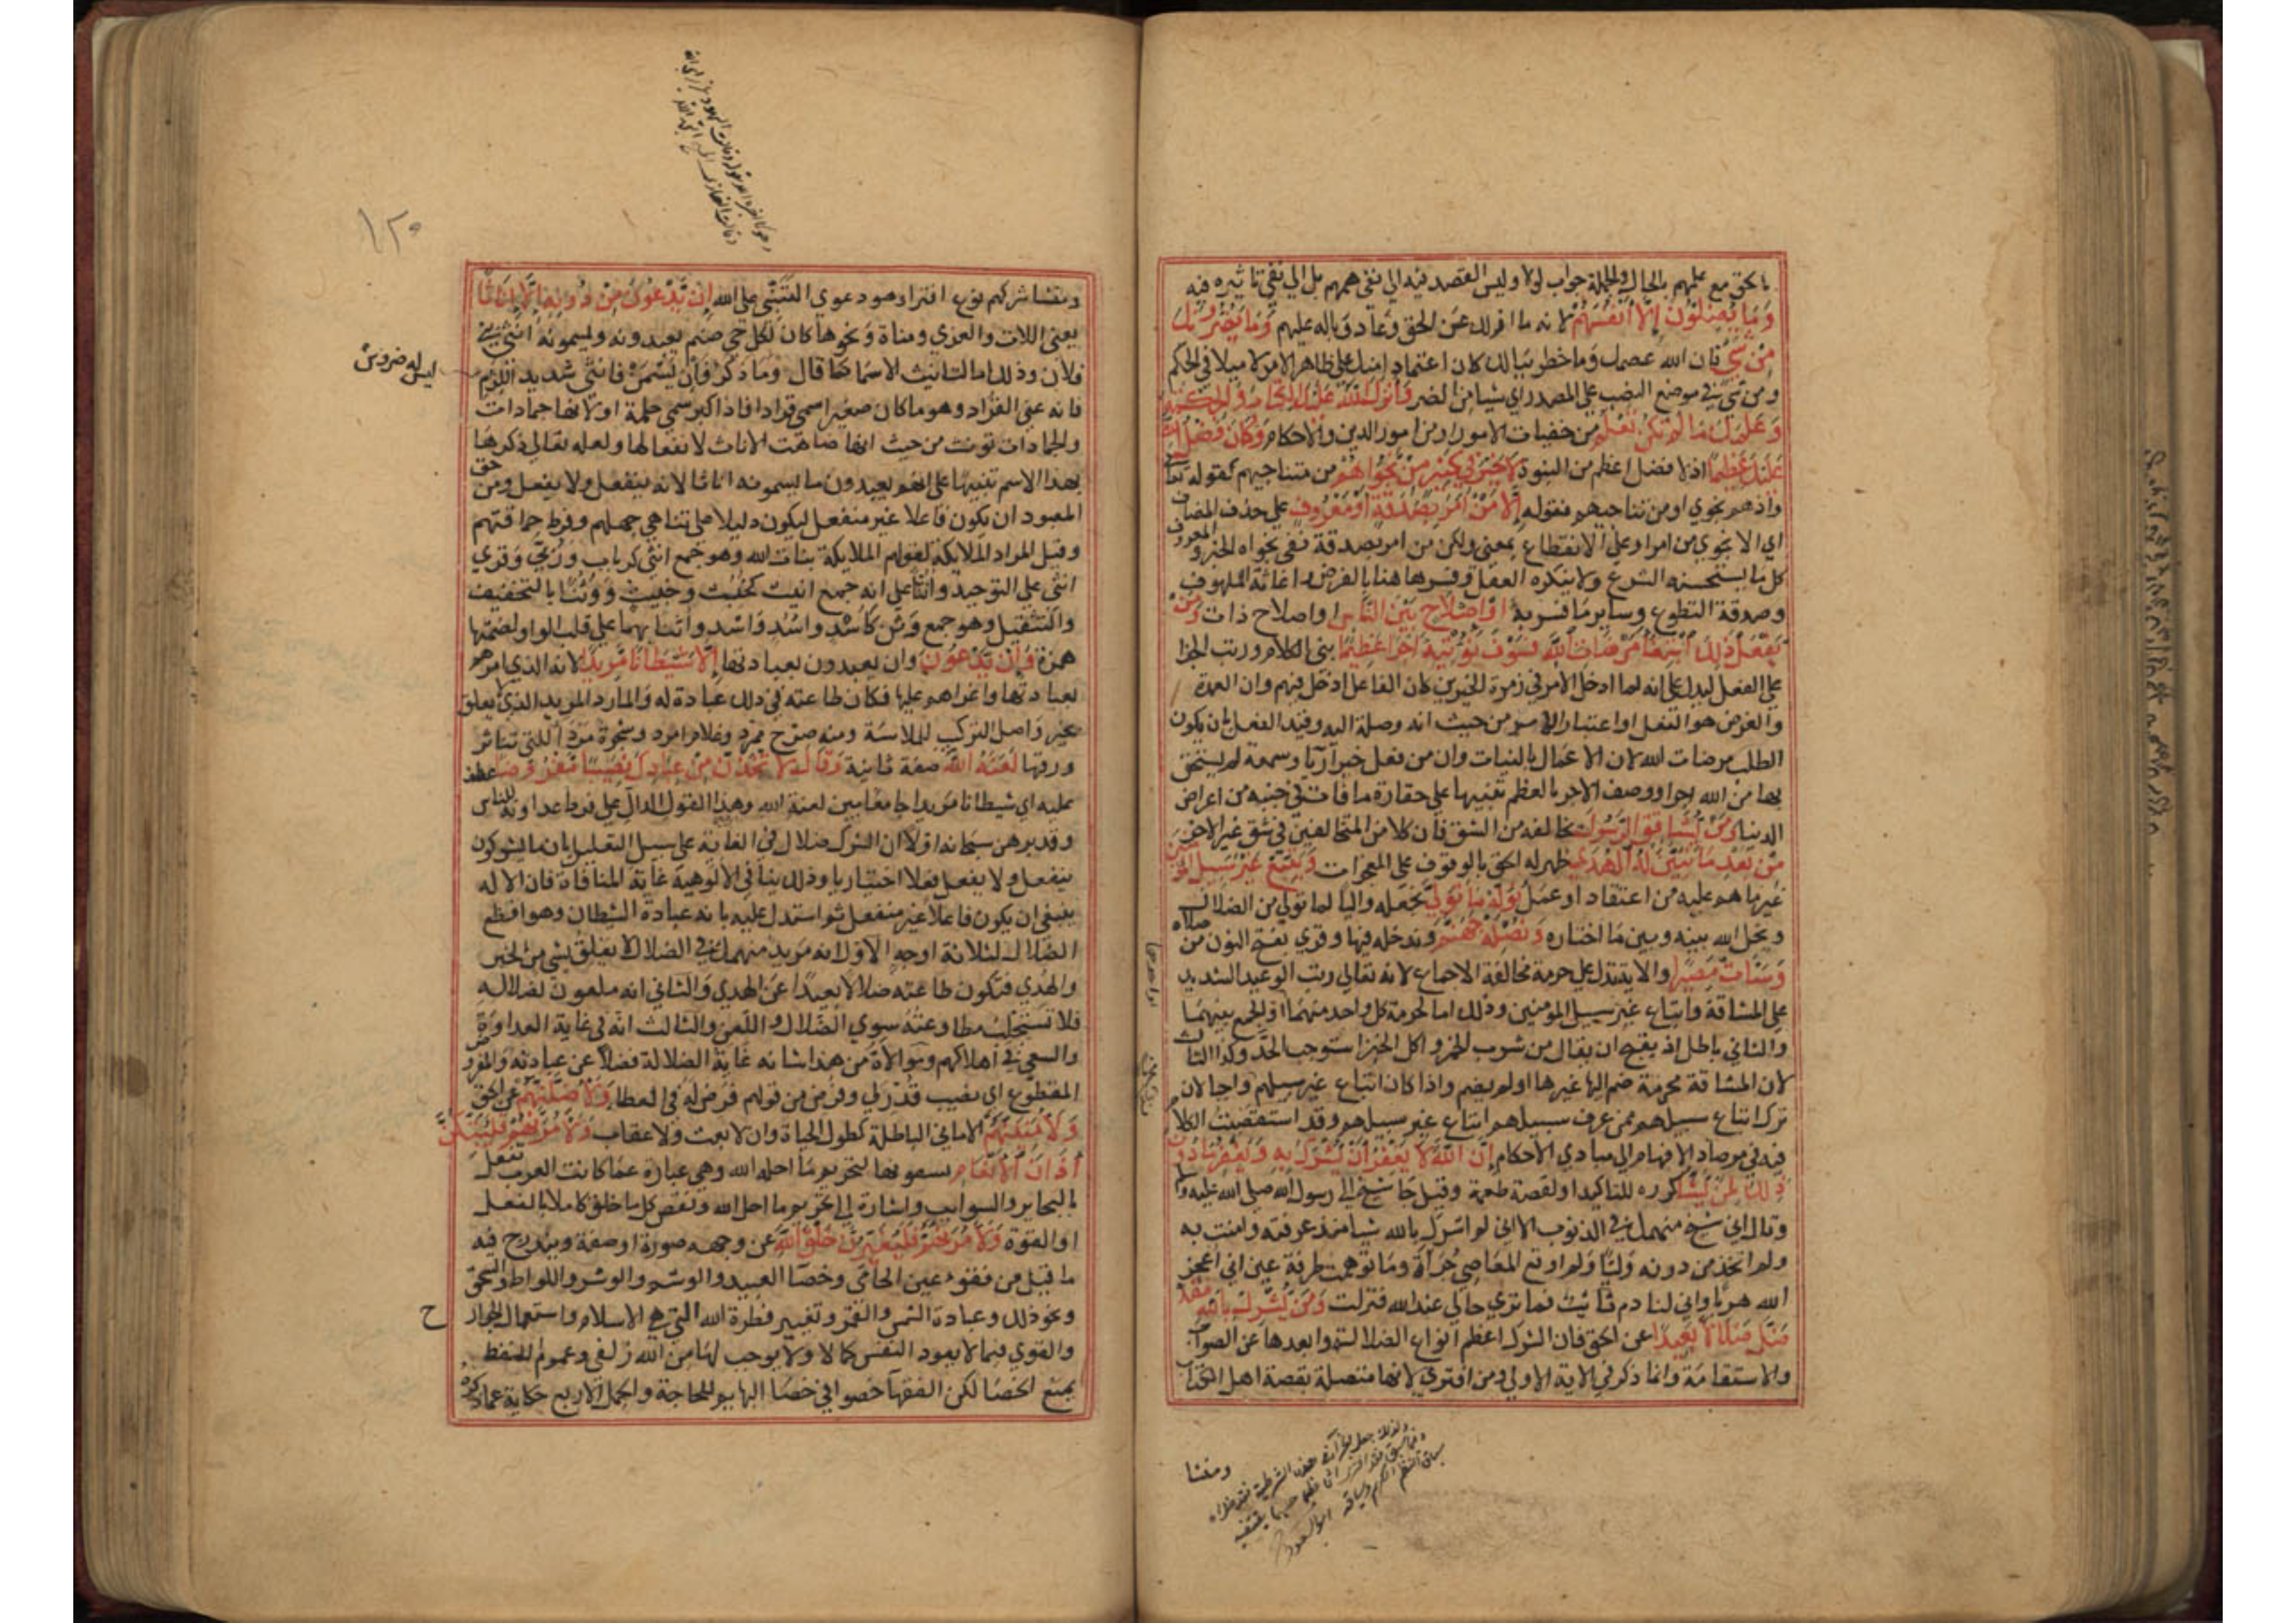 بالحق مع علمهم بالحال والجملة جواب لولا وليس القصد فيه الى نفى همهم بل الى نفى تاثيره فيه
وَمَا يُضِلُّونَ إِلَّا أَنفُسَهُمْ لانه ما ازلك عن الحق وعاد وباله عليهم وَمَا يَضُرُّونَكَ
مِن شَيْءٍ فان الله عصمك وما خطر ببالك كان اعتمادا منك على ظاهر الامر لا ميلا في الحكم
ومن شيء في موضع النصب على المصدر اي شيا من الضر وَأَنزَلَ اللَّهُ عَلَيْكَ الْكِتَابَ وَالْحِكْمَةَ
وَعَلَّمَكَ مَا لَمْ تَكُن تَعْلَمُ من خفيات الامور او من امور الدين والاحكام وَكَانَ فَضْلُ اللَّهِ
عَلَيْكَ عَظِيمًا اذ لا فضل اعظم من النبوة لَا خَيْرَ فِي كَثِيرٍ مِّن نَّجْوَاهُمْ من متناجيهم كقوله تعالى
واذ هم نجوى او من تناجيهم فقوله إِلَّا مَنْ أَمَرَ بِصَدَقَةٍ أَوْ مَعْرُوفٍ على حذف المضاف
اي الا نجوى من امر او على الانقطاع بمعنى ولكن من امر بصدقة ففى نجواه الخير والمعروف
كل ما يستحسنه الشرع ولا ينكره العقل وفسر هاهنا بالقرض واغاثة الملهوف
وصدقة التطوع وساير ما فسر به أَوْ إِصْلَاحٍ بَيْنَ النَّاسِ او اصلاح ذات وَمَن
يَفْعَلْ ذَٰلِكَ ابْتِغَاءَ مَرْضَاتِ اللَّهِ فَسَوْفَ نُؤْتِيهِ أَجْرًا عَظِيمًا بنى الكلام ورتب الجزا
على الفعل ليدل على انه لما ادخل الامر في زمرة الخيرين كان الفاعل ادخل فيهم وان العمدة
والغرض هو الفعل او اعتبار الامر من حيث انه وصلة اليه وقيد الفعل بان يكون
الطلب مرضات الله لان الاعمال بالنيات وان من فعل خيرا رياء وسمعة لم يستحق
بها من الله اجرا ووصف الاجر بالعظم تنبيها على حقارة ما فات في جنبه من اعراض
الدنيا وَمَن يُشَاقِقِ الرَّسُولَ يخالفه من الشق فان كلا من المتخالفين في شق غير الاخر
مِن بَعْدِ مَا تَبَيَّنَ لَهُ الْهُدَىٰ ظهر له الحق بالوقوف على المعجزات وَيَتَّبِعْ غَيْرَ سَبِيلِ الْمُؤْمِنِينَ
غير ما هم عليه من اعتقاد او عمل نُوَلِّهِ مَا تَوَلَّىٰ نجعله واليا لما تولى من الضلال
ونخل الله بينه وبين ما اختاره وَنُصْلِهِ جَهَنَّمَ وندخله فيها وقرى بفتح النون من صلاه
وَسَاءَتْ مَصِيرًا والاية تدل على حرمة مخالفة الاجماع لانه تعالى رتب الوعيد الشديد
على المشاقة واتباع غير سبيل المومنين وذلك اما لحرمة كل واحد منهما او الجمع بينهما
والثاني باطل اذ يقبح ان يقال من شرب الخمر واكل الخبز استوجب الحد وكذا الثالث
لان المشاقة محرمة ضم اليها غيرها اولم يضم واذا كان اتباع غير سبيلهم واجبا لان
ترك اتباع سبيلهم ممن عرف سبيلهم اتباع غير سبيلهم وقد استقصيت الكلام
فيه في مرصاد الافهام الى مبادي الاحكام إِنَّ اللَّهَ لَا يَغْفِرُ أَن يُشْرَكَ بِهِ وَيَغْفِرُ مَا دُونَ
ذَٰلِكَ لِمَن يَشَاءُ كرره للتاكيد او لقصة طعمة وقيل جا شيخ الى رسول الله صلى الله عليه وسلم
وقال اني شيخ منهمك في الذنوب الا اني لم اشرك بالله شيا منذ عرفته وامنت به
ولم اتخذ من دونه وليا ولم اوقع المعاصي جرأة وما توهمت طرفة عين اني اعجز
الله هربا واني لنادم تائب فما ترى حالي عند الله فنزلت وَمَن يُشْرِكْ بِاللَّهِ فَقَدْ
ضَلَّ ضَلَالًا بَعِيدًا عن الحق فان الشرك اعظم انواع الضلالة وابعدها عن الصواب
والاستقامة وانما ذكر في الاية الاولى ومن افترى لانها متصلة بقصة اهل الكتاب
ومنشا
١٢٠
ومنشا شركهم نوع افترا وهو دعوى التبني على الله إِن يَدْعُونَ مِن دُونِهِ إِلَّا إِنَاثًا
يعنى اللات والعزى ومناة ونحوها كان لكل حي صنم يعبدونه ويسمونه انثى بني
فلان وذلك اما التانيث الاسما كما قال وما ذكر فان يسمن فانثى شديد الازم
ليس له ضروس
فانه عنى القراد وهو ما كان صغيرا سمى قرادا فاذا كبر سمى حلمة او لانها جمادات
والجمادات تونث من حيث انها ضاهت الاناث لانفعالها ولعله تعالى ذكرها
بهذا الاسم تنبيها على انهم يعبدون ما يسمونه اناثا لانه ينفعل ولا يفعل ومن حق
المعبود ان يكون فاعلا غير منفعل ليكون دليلا على تناهي جهلهم وفرط حماقتهم
وقيل المراد الملايكة لقولهم الملايكة بنات الله وهو جمع انثى كرباب وربى وقرى
انثى على التوحيد وانثا على انه جمع انيث كخبث وخبيث ووثنا بالتخفيف
والتثقيل وهو جمع وثن كاسد واسد واسد واثنا بهما على قلب الواو لضمتها
همزة وَإِن يَدْعُونَ وان يعبدون بعبادتها إِلَّا شَيْطَانًا مَّرِيدًا لانه الذي امرهم
بعبادتها واغراهم عليها فكان طاعته في ذلك عبادة له والمارد المريد الذي لا يعلق
بخير واصل التركيب للملاسة ومنه صرح ممرد وغلام امرد وشجرة مردا للتي تناثر
ورقها لَّعَنَهُ اللَّهُ صفة ثانية وَقَالَ لَأَتَّخِذَنَّ مِنْ عِبَادِكَ نَصِيبًا مَّفْرُوضًا عطف
عليه اي شيطانا مريدا جامعا بين لعنة الله وهذا القول الدال على فرط عداوته للناس
وقد برهن سبحانه اولا ان الشرك ضلال في الغاية على سبيل التعليل بان ما يشركون
ينفعل ولا يفعل فعلا اختياريا وذلك ينافي الالوهية غاية المنافاة فان الاله
ينبغي ان يكون فاعلا غير منفعل ثم استدل عليه بانه عبادة الشيطان وهو افظع
الضلال لثلاثة اوجه الاول انه مريد منهمك في الضلال لا يعلق بشي من الخير
والهدى فتكون طاعته ضلالا بعيدا عن الهدى والثاني انه ملعون لضلاله
فلا تستجلب مطاوعته سوى الضلال واللعن والثالث انه في غاية العداوة
والسعى في اهلاكهم وموالاة من هذا شانه غاية الضلالة فضلا عن عبادته والمفروض
المقطوع اي نصيب قدر لي وفرض من قولهم فرض له في العطا وَلَأُضِلَّنَّهُمْ عن الحق
وَلَأُمَنِّيَنَّهُمْ الاماني الباطلة كطول الحياة وان لا بعث ولا عقاب وَلَآمُرَنَّهُمْ فَلَيُبَتِّكُنَّ
آذَانَ الْأَنْعَامِ يشقونها لتحريم ما احله الله وهي عبارة عما كانت العرب تفعل
بالبحاير والسوايب واشارة الى تحريم ما احل الله ونقص كل ما خلق كاملا بالفعل
او القوة وَلَآمُرَنَّهُمْ فَلَيُغَيِّرُنَّ خَلْقَ اللَّهِ عن وجهه صورة او صفة ويندرج فيه
ما قيل من فقوء عين الحامي وخصا العبيد والوشم والوشر واللواط والسحق
ونحو ذلك وعبادة الشمس والقمر وتغيير فطرة الله التي هي الاسلام واستعمال الجوارح
والقوى فيما لا يعود النفس كمالا ولا يوجب لها من الله زلفى وعموم اللفظ
يمنع الخصا لكن الفقها خصوا في خصا البهايم للحاجة والجمل الاربع حكاية عما ذكره